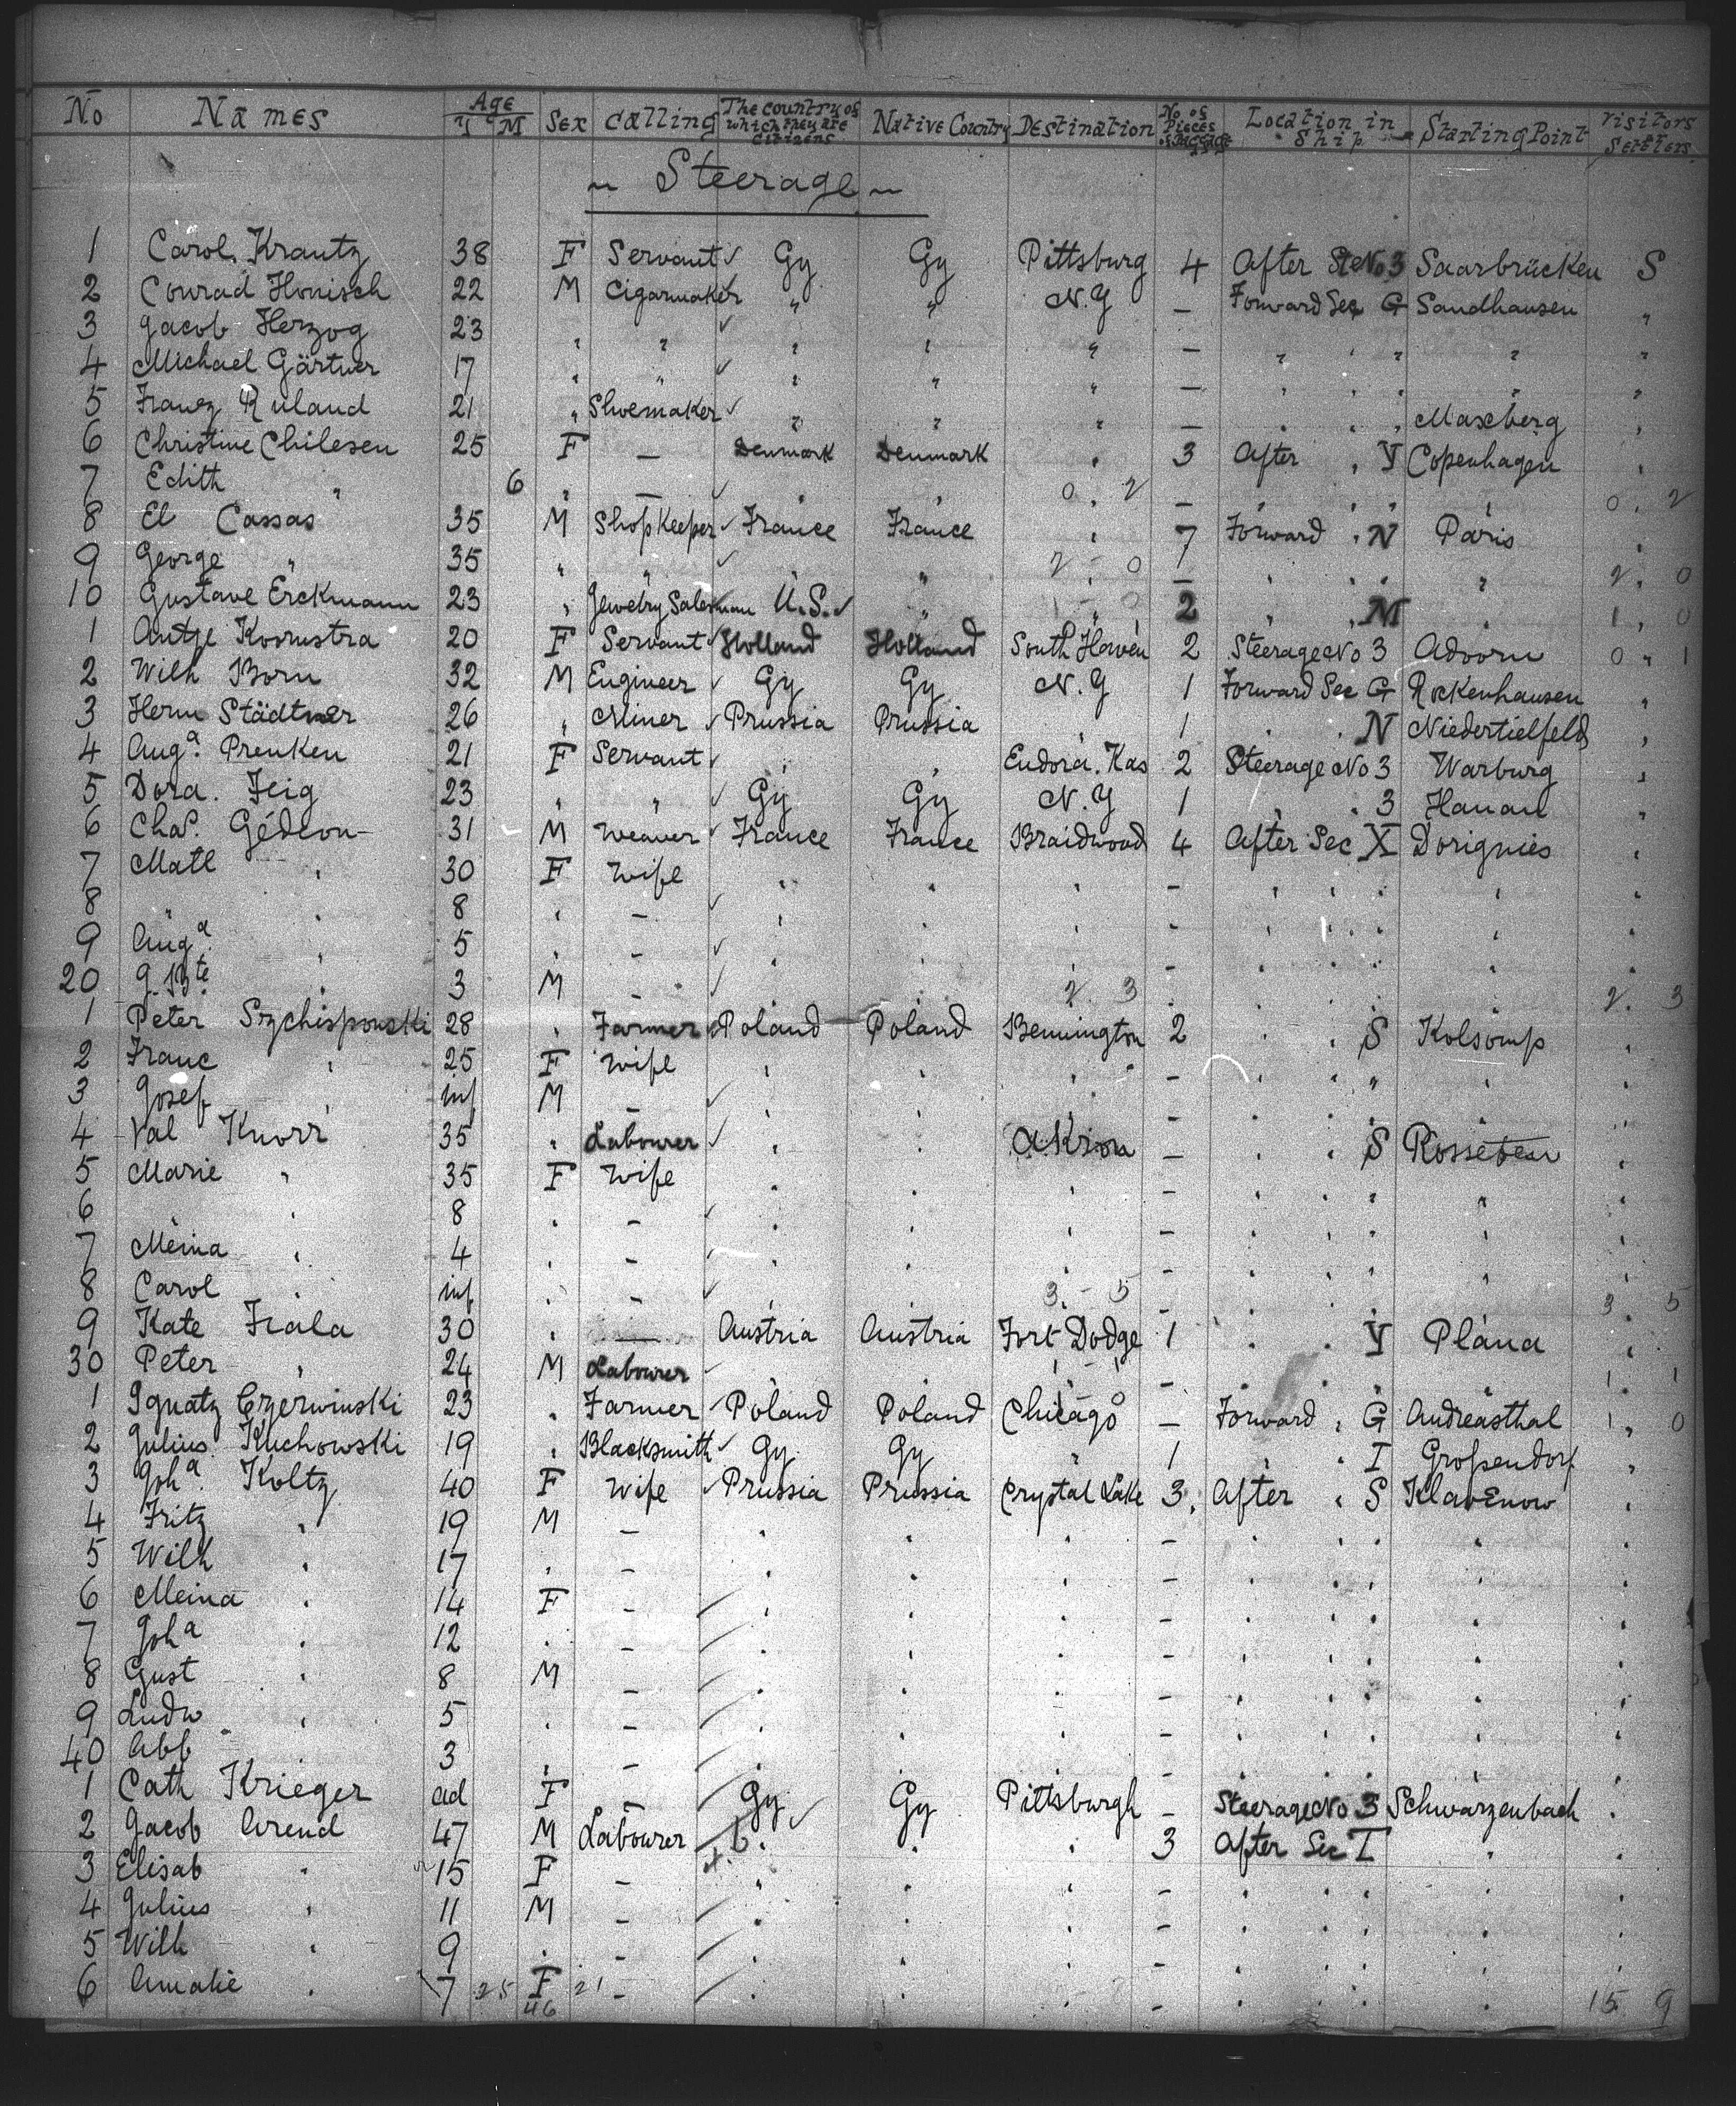 No Names Age Y M Sex Calling The country of which they are citizens Native Country Destination No. of Pieces of Baggage Location in Ship Starting Point Visitors Settlers
~ Steerage ~
1 Carol. Krautz 38 F Servant ✓ Gy Gy Pittsburg 4 After Ste No 3 Saarbrücken S
2 Conrad Honisch 22 M Cigarmaker " " N.Y — Forward Sec G Sandhausen "
3 Jacob Herzog 23 " " ✓ " " " — " " " " "
4 Michael Gärtner 17 " " ✓ " " " — " " " " "
5 Franz Ruland 21 " Shoemaker ✓ " " " — " " " Maxberg "
6 Christine Chilesen 25 F — Denmark Denmark " 3 After " Y Copenhagen "
7 Edith " 6 " — ✓ " " 0 . 2 — " " " " 0 . 2
8 El Cassas 35 M Shopkeeper ✓ France France " 7 Forward " N Paris "
9 George " 35 " " ✓ " " 2 . 0 — " " " " 2 . 0
10 Gustave Erckmann 23 " Jewelry Salesman U.S. ✓ " " 2 " " M " 1 , 0
1 Antje Kosrustra 20 F Servant ✓ Holland Holland South Haven 2 Steerage No 3 Adoorn 0 " 1
2 Wilh Born 32 M Engineer ✓ Gy Gy N.Y 1 Forward Sec G Rokenhausen "
3 Herm Städtner 26 " Miner ✓ Prussia Prussia " 1 " " N Niedertielfeld "
4 Auga. Prenken 21 F Servant ✓ " " Eudora. Kas 2 Steerage No 3 Warburg "
5 Dora. Feig 23 " " ✓ Gy Gy N.Y 1 " " 3 Hanau "
6 Chas. Gédeon 31 M Weaver ✓ France France Braidwood 4 After Sec X Dorignies "
7 Matl " 30 F Wife " " " — " " " " "
8 " " 8 " — ✓ " " " — " " " " "
9 Auga. " 5 " — ✓ " " " — " " " " "
20 J. Bte " 3 M — ✓ " " 2. 3 " " " " " 2. 3
1 Peter Szchispowski 28 " Farmer Poland Poland Bennington 2 " " S Kolsomp "
2 Franc " 25 F Wife " " " — " " " " "
3 Josef " inf M — ✓ " " " — " " " " "
4 Val Knorr 35 " Labourer ✓ " " Akron — " " S Rosseten "
5 Marie " 35 F Wife " " " — " " " " "
6 " " 8 " — ✓ " " " — " " " " "
7 Meina " 4 " — ✓ " " " — " " " " "
8 Carol " inf " — ✓ " " 3. - 5 — " " " " 3 . 5
9 Kate Fiala 30 " — Austria Austria Fort Dodge 1 " " Y Plana "
30 Peter " 24 M Labourer ✓ " " 1 - 1 — " " " " 1 . 1
1 Ignatz Czerwinski 23 " Farmer ✓ Poland Poland Chicago — Forward " G Andreasthal 1 , 0
2 Julius Kuchowski 19 " Blacksmith ✓ Gy Gy " 1 " " I Großendorf "
3 Joha. Koltz 40 F Wife ✓ Prussia Prussia Crystal Lake 3. After " S Klavenow "
4 Fritz " 19 M — " " " — " " " " "
5 Wilh " 17 " — " " " — " " " " "
6 Meina " 14 F — " " " — " " " " "
7 Joha " 12 " — " " " — " " " " "
8 Gust " 8 M — " " " — " " " " "
9 Ludw " 5 " — " " " — " " " " "
40 Abb " 3 " — " " " — " " " " "
1 Cath Krieger ad F — Gy ✓ Gy Pittsburgh — Steerage No 3 Schwarzenbach "
2 Jacob Arend 47 M Labourer " " " 3 After Sec I " "
3 Elisab " 15 F — " " " — " " " " "
4 Julius " 11 M — " " " — " " " " "
5 Wilh " 9 " — " " " — " " " " "
6 Amalie " 7 25 F 21 — " " " — " " " " 15 9
46